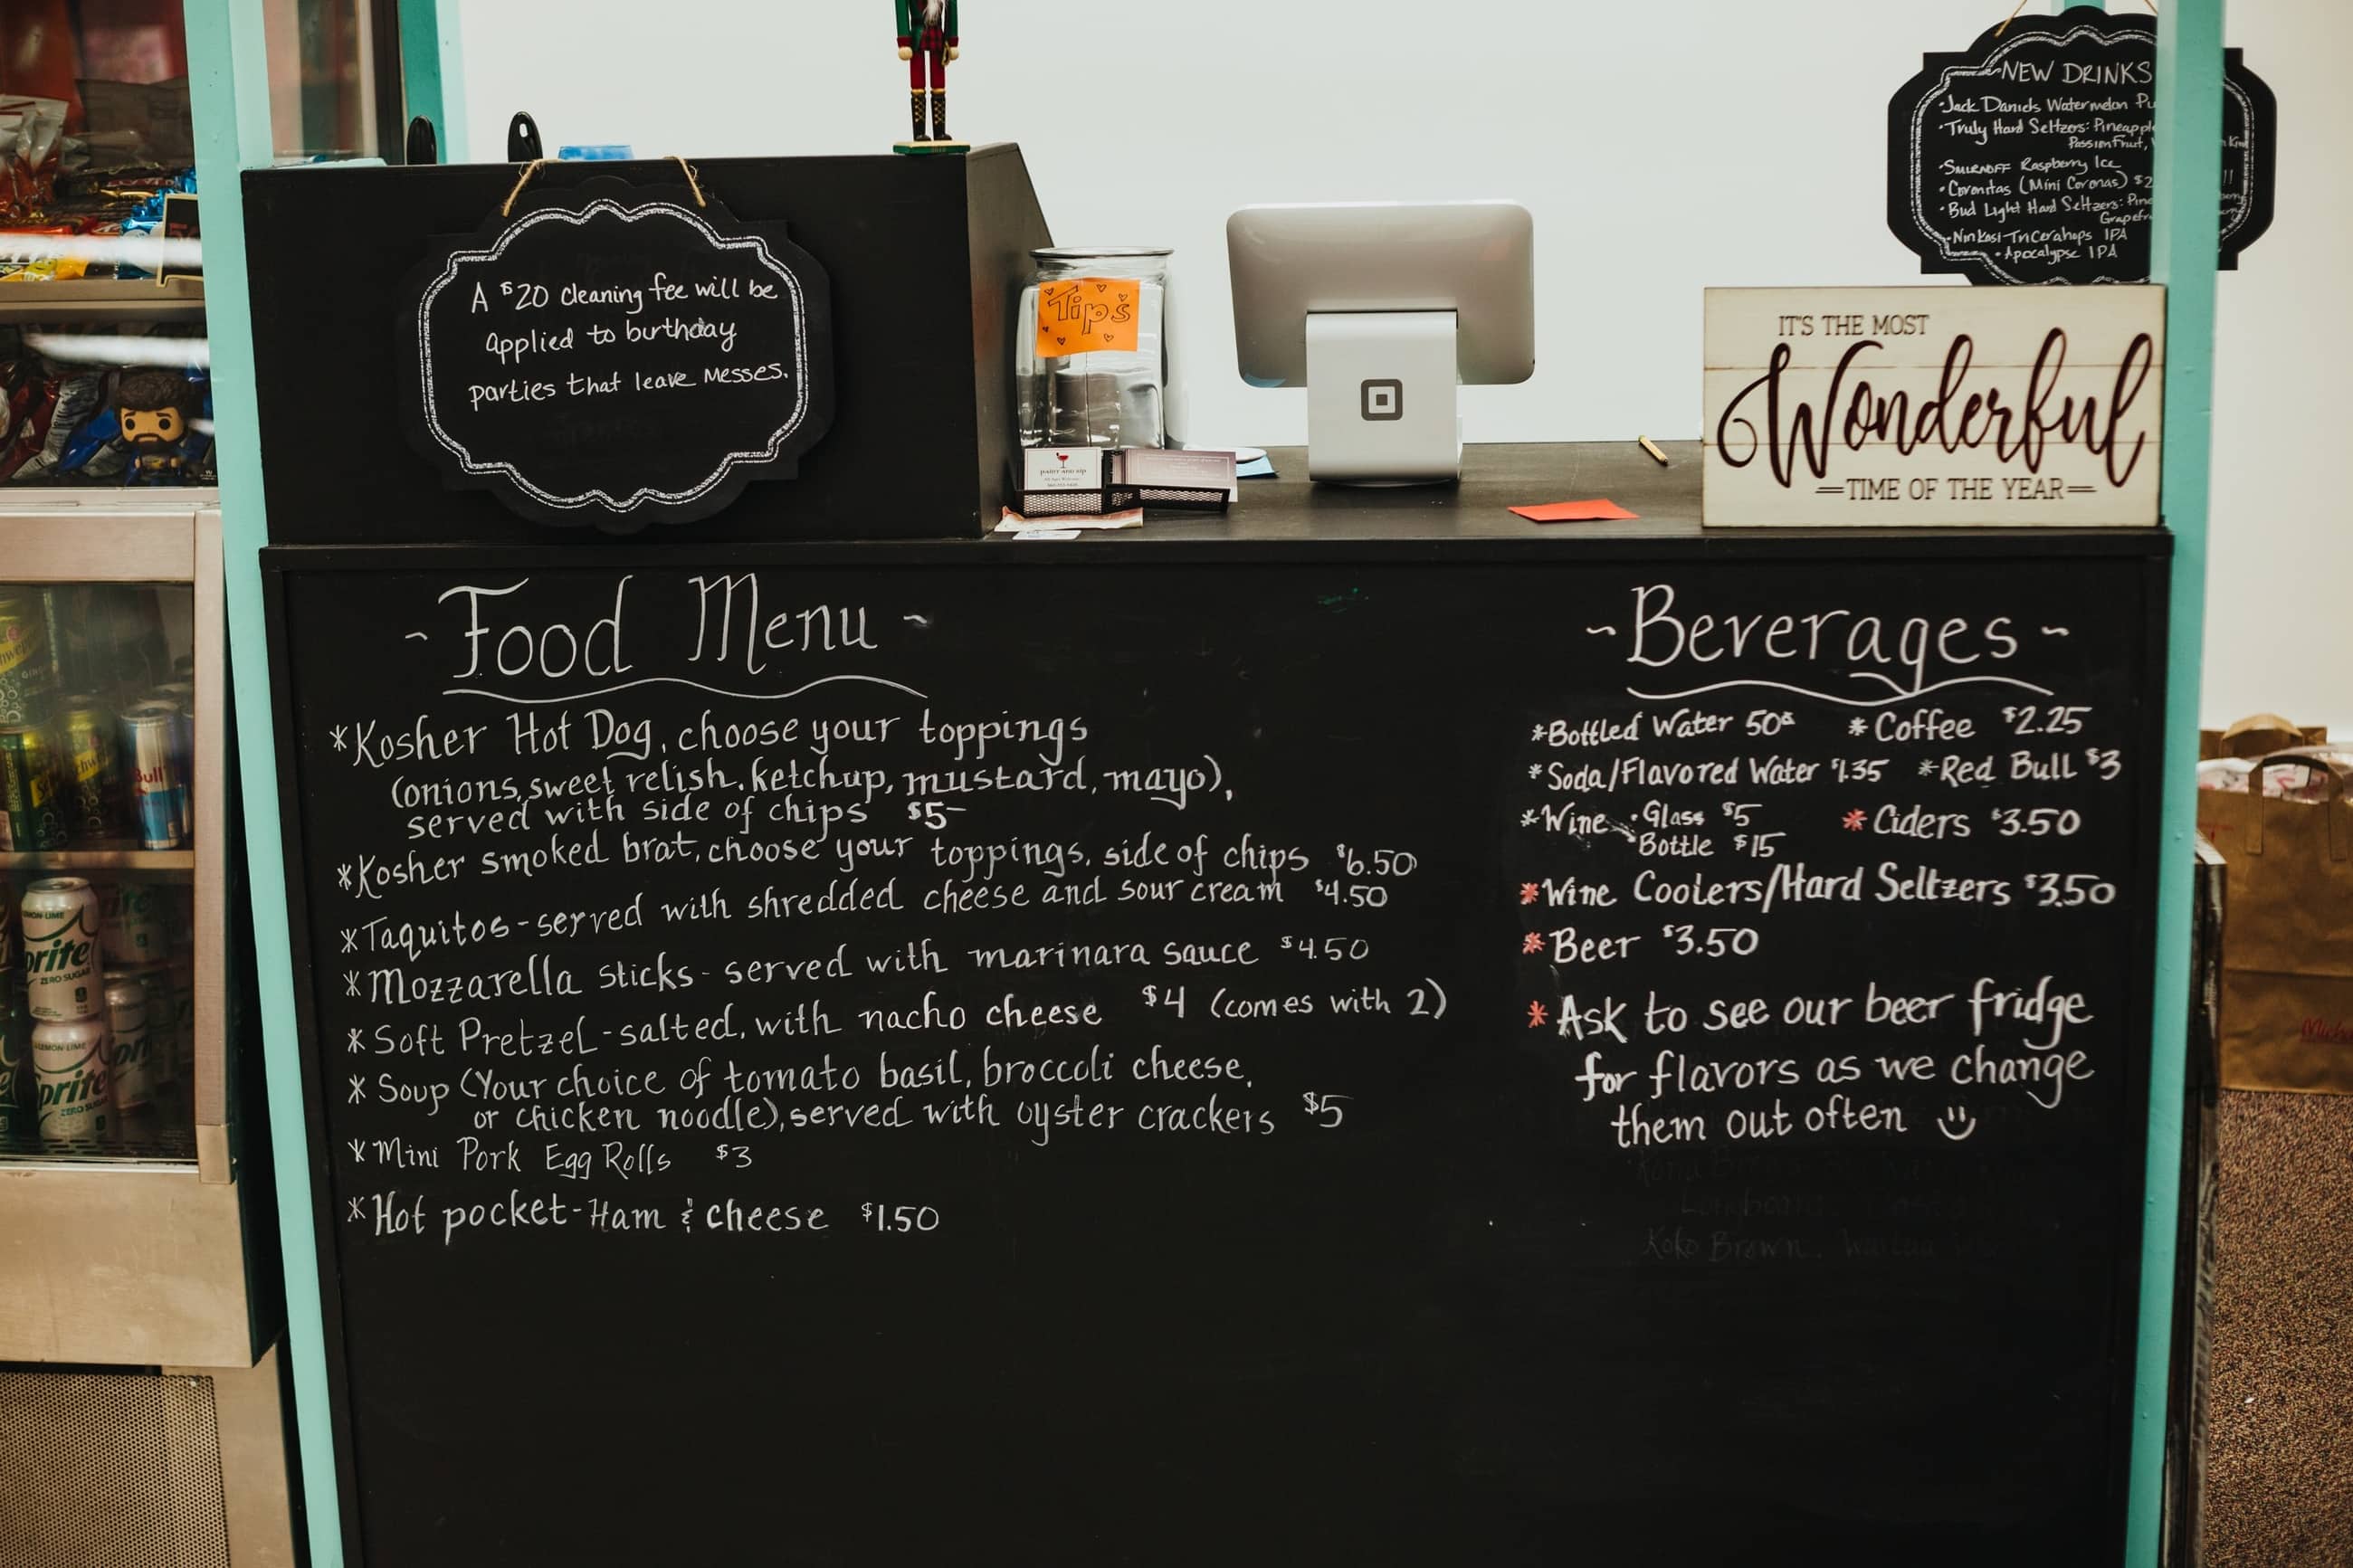 A $20 cleaning fee will be
applied to birthday
parties that leave messes.
Tips
PAINT AND SIP
NEW DRINKS
·Jack Daniels Watermelon
·Truly Hard Seltzers:
Passion Fruit,
·SMIRNOFF Raspberry Ice
·Coronitas (Mini Coronas) $2
·Bud Light Hard Seltzers:
·Ninkasi Tricerahops IPA
·Apocalypse IPA
IT'S THE MOST
Wonderful
TIME OF THE YEAR
~Food Menu~
*Kosher Hot Dog, choose your toppings
(onions, sweet relish, ketchup, mustard, mayo),
served with side of chips $5
*Kosher smoked brat, choose your toppings, side of chips $6.50
*Taquitos-served with shredded cheese and sour cream $4.50
*Mozzarella sticks-served with marinara sauce $4.50
*Soft Pretzel-salted, with nacho cheese $4 (comes with 2)
*Soup (Your choice of tomato basil, broccoli cheese,
or chicken noodle), served with oyster crackers $5
*Mini Pork Egg Rolls $3
*Hot pocket-Ham & cheese $1.50
~Beverages~
*Bottled Water 50¢ *Coffee $2.25
*Soda/Flavored Water $1.35 *Red Bull $3
*Wine ·Glass $5 *Ciders $3.50
·Bottle $15
*Wine Coolers/Hard Seltzers $3.50
*Beer $3.50
*Ask to see our beer fridge
for flavors as we change
them out often
Koko Brown.
Bull
LEMON-LIME
Sprite
ZERO SUGAR
LEMON-LIME
Sprite
ZERO SUGAR